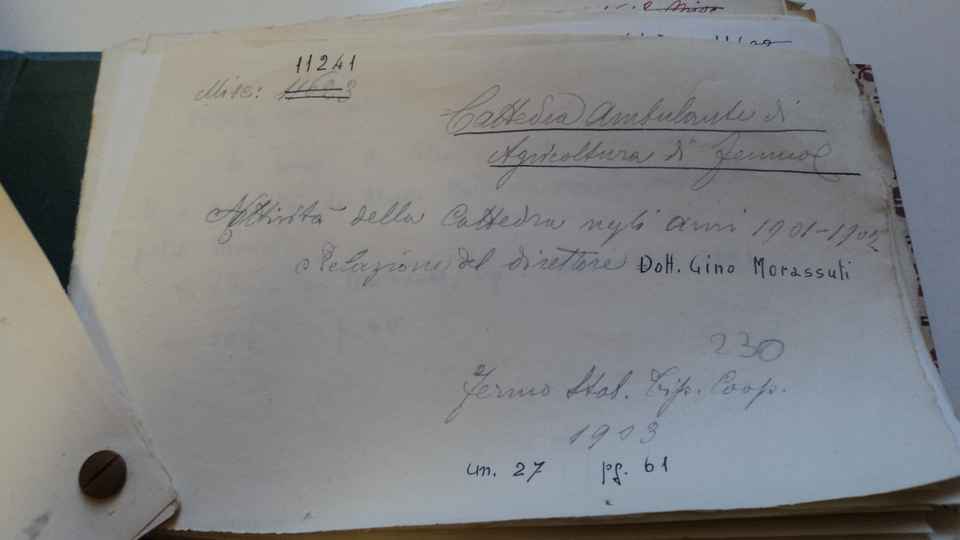 11241
Misc: 11603
Cattedra Ambulante di
Agricoltura di Fermo
Attività della Cattedra negli anni 1901-1902
Relazione del direttore Dott. Gino Morassuti
230
Fermo Stab. Tip. Coop.
1903
cm. 27 pg. 61